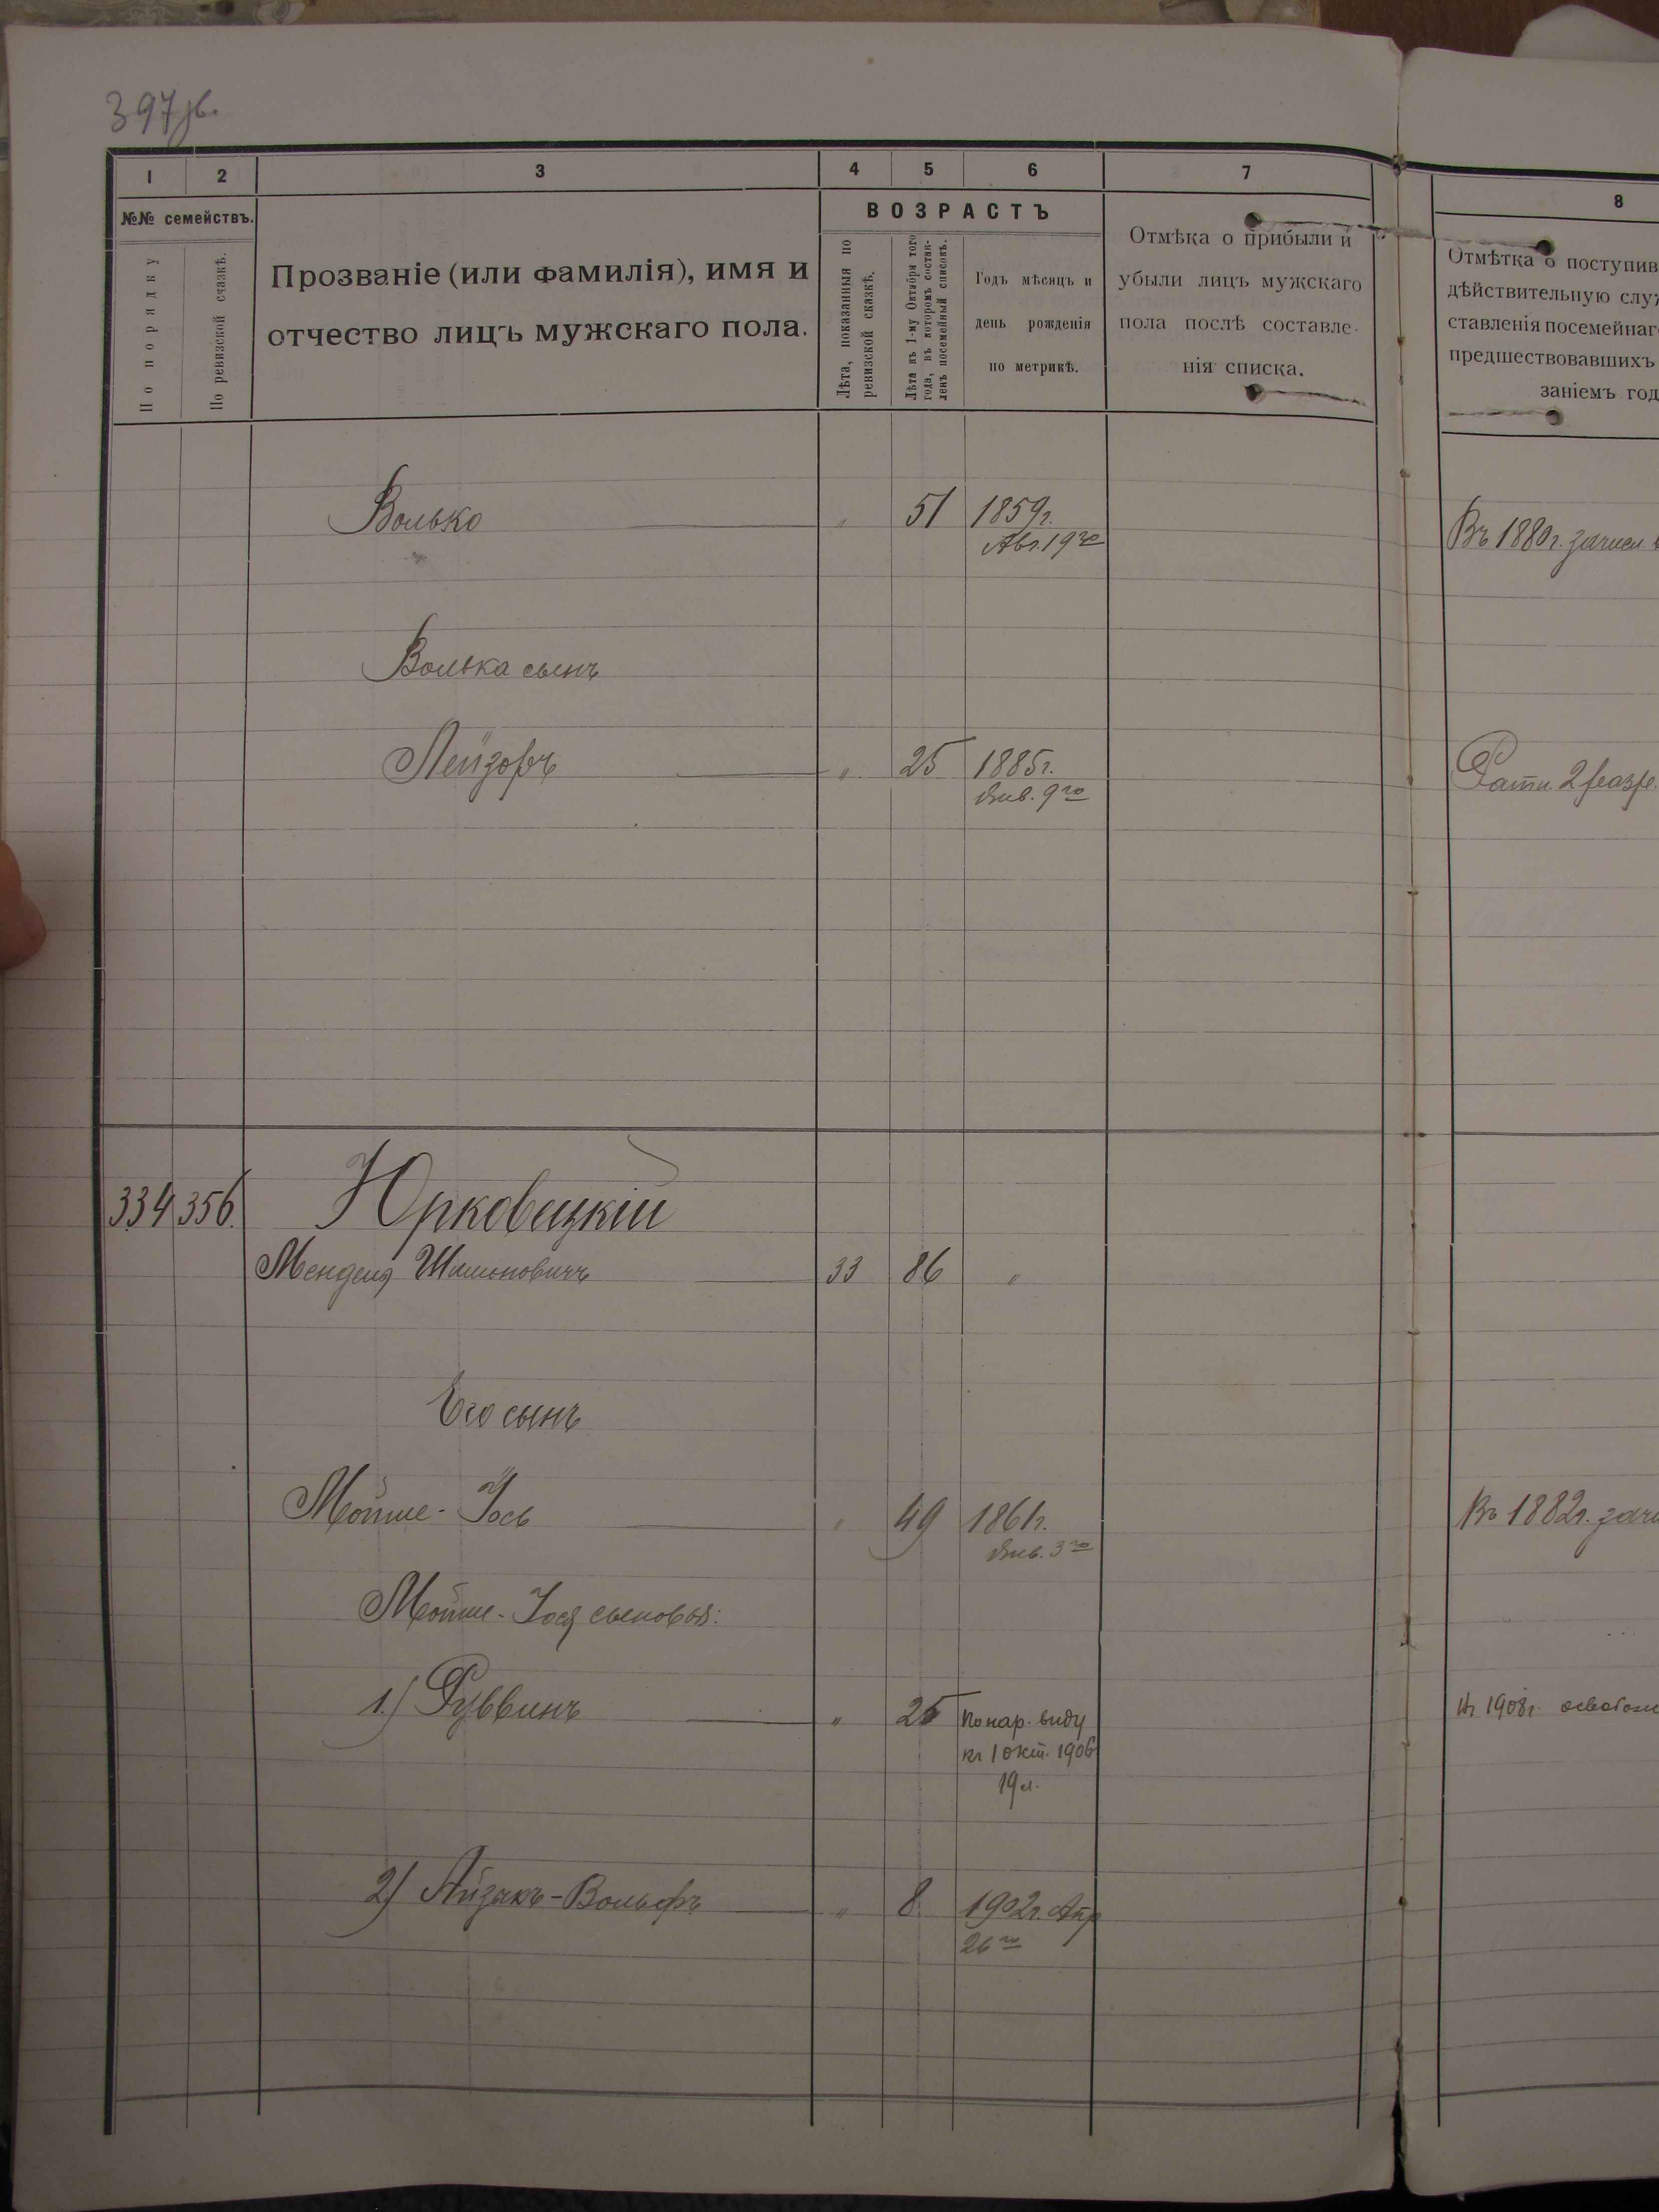 397 зв.
1 2 3 4 5 6 7 8
№№ семействъ.
По порядку
По ревизской сказкѣ.
Прозваніе (или фамилія), имя и
отчество лицъ мужскаго пола.
ВОЗРАСТЪ
Лѣта, показанныя по
ревизской сказкѣ.
Лѣта къ 1-му Октября того
года, въ которомъ состав-
ленъ посемейный списокъ.
Годъ мѣсяцъ и
день рожденія
по метрикѣ.
Отмѣка о прибыли и
убыли лицъ мужскаго
пола послѣ составле-
нія списка.
Отмѣтка о поступив
дѣйствительную служ
ставленія посемейнаг
предшествовавшихъ
заніемъ год
Волько " 51 1859г.
Авг. 19го
Въ 1880г. зачисл. в
Волька сынъ
Лейзоръ " 25 1885г.
Янв. 9го
Ратн. 2 разр.
334 356. Юрковецкій
Мендель Шимоновичъ 33 86 "
Его сынъ
Мойше-Іось " 49 1861г.
Янв. 3го
Въ 1882г. зачи
Мойше-Іося сыновья:
1.) Руввинъ " 25 По нар. виду
къ 1 окт. 1906
19 л.
Въ 1908г. освобож
2) Айзикъ-Вольфъ " 8 1902г. Апр
26го